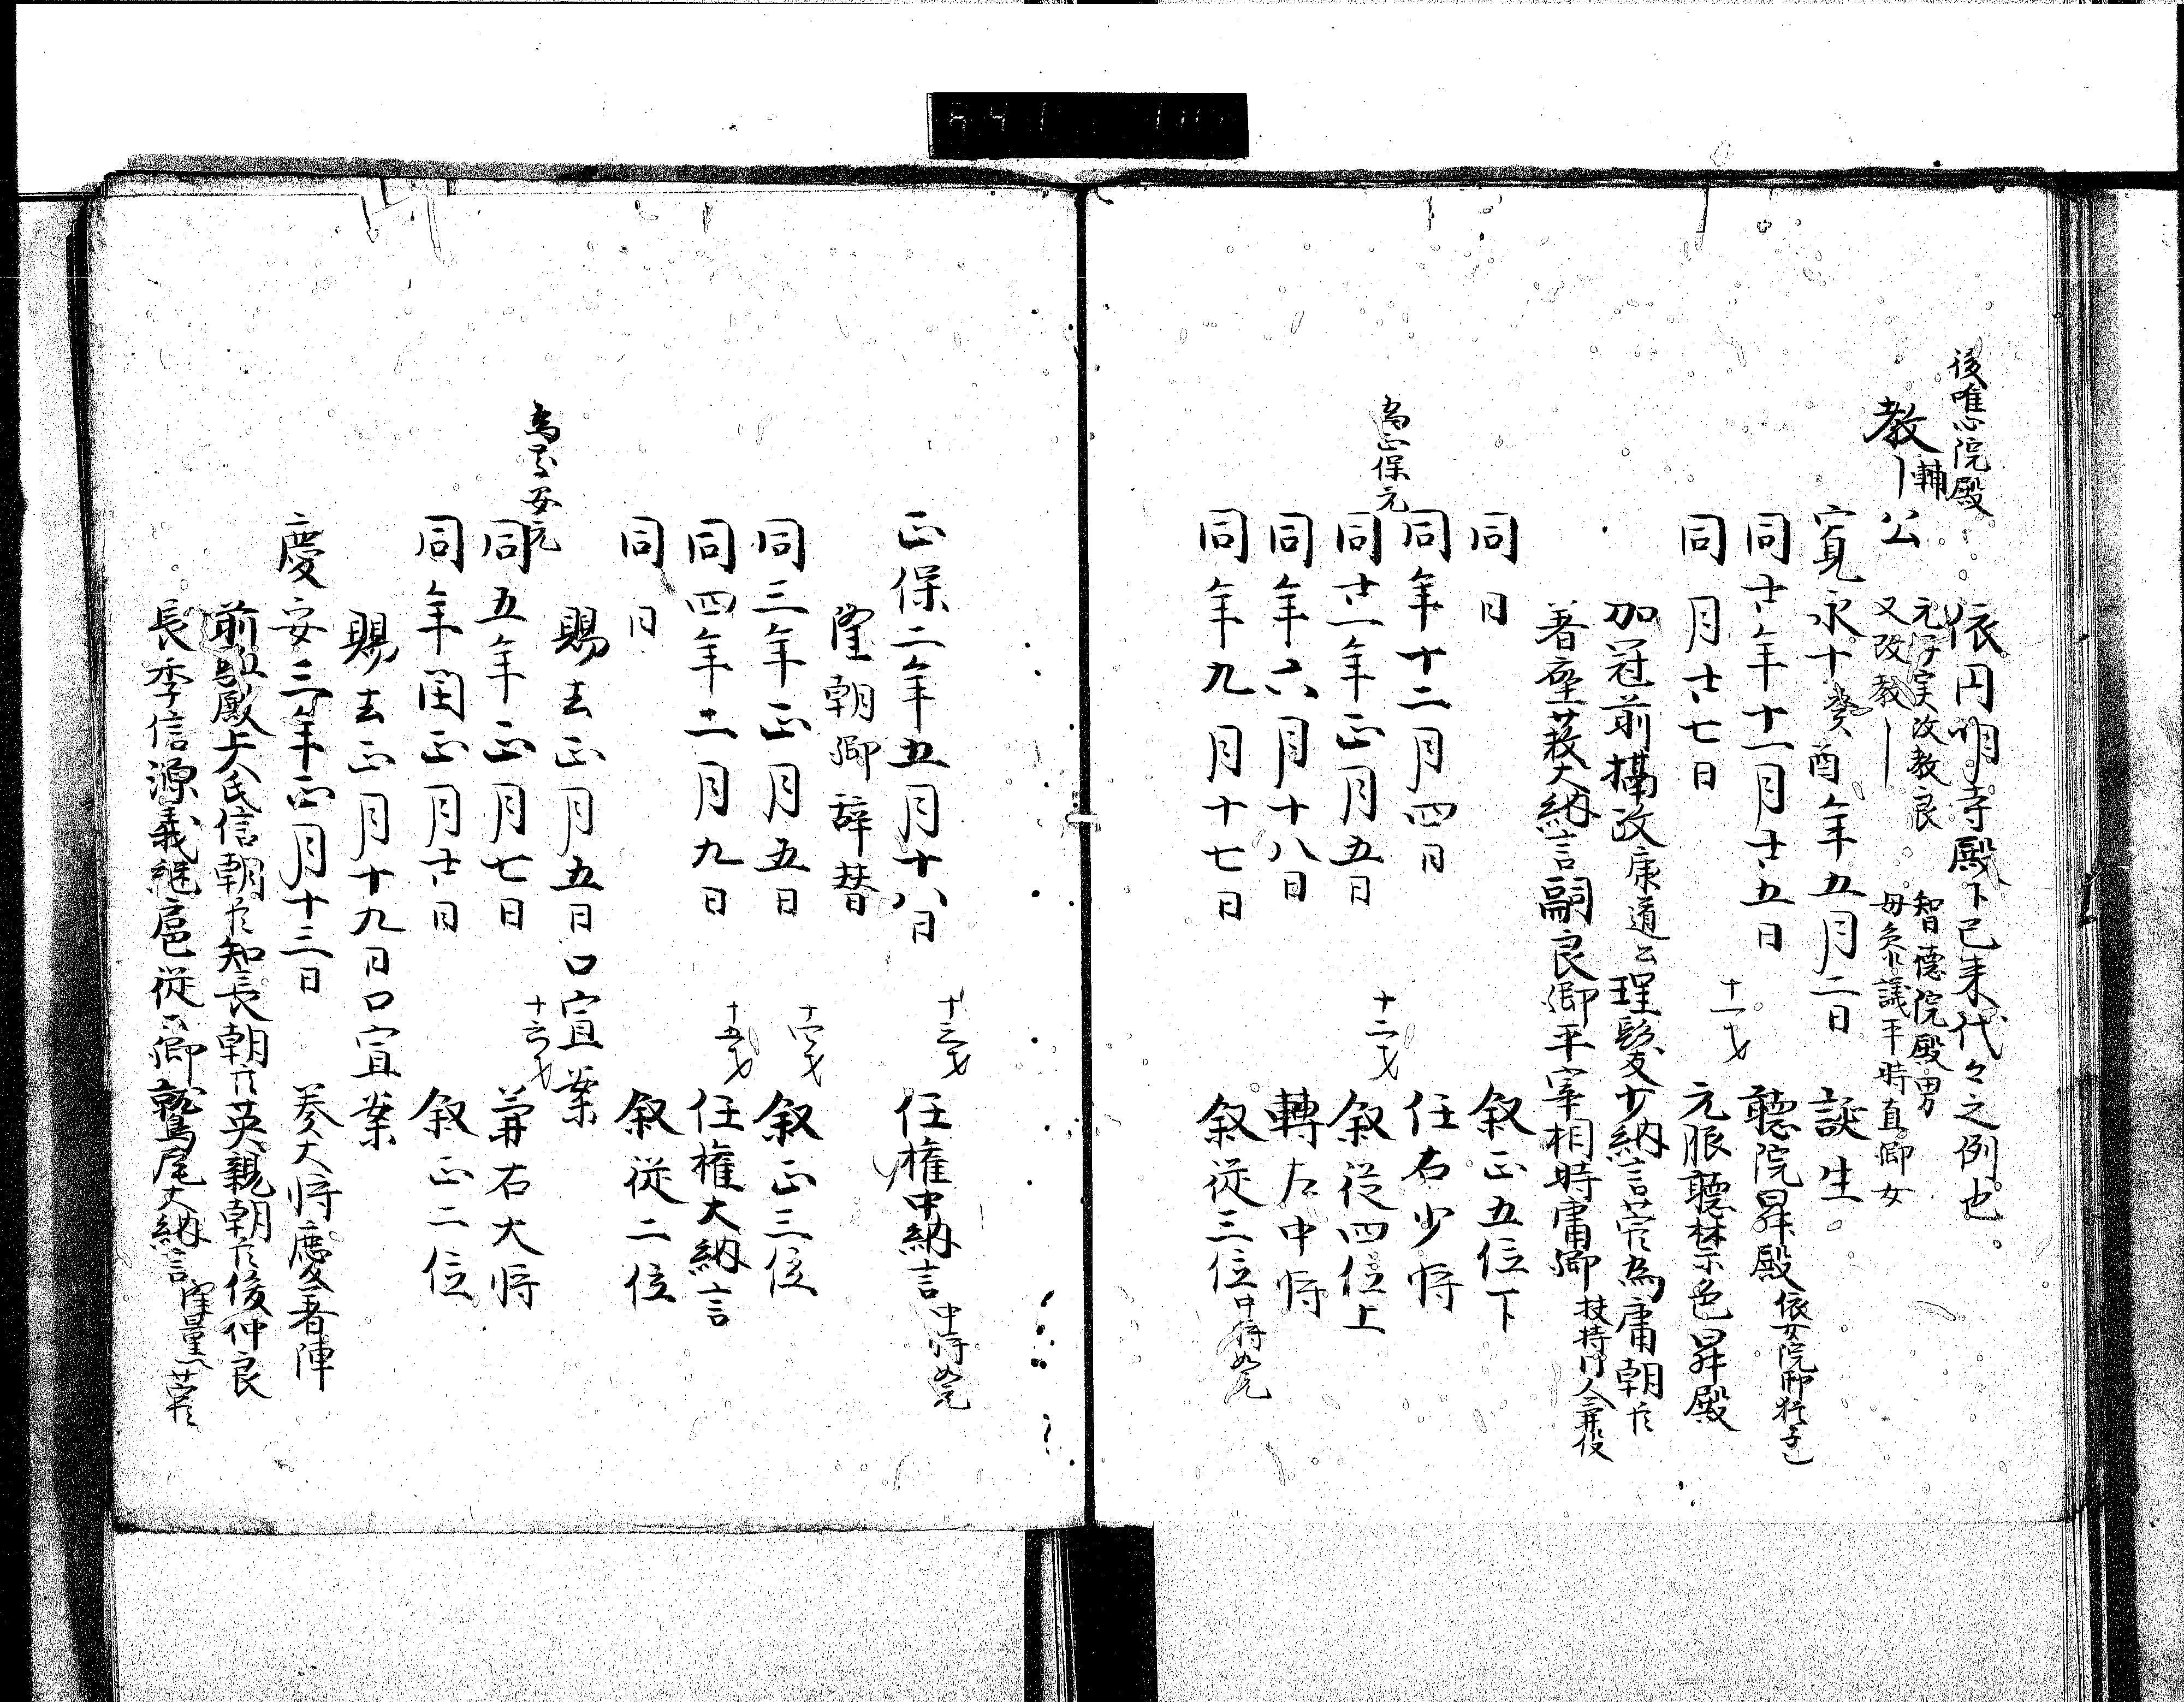 後唯心院殿
依円明寺殿下已来代々之例也。
教輔公
元実改教良
又改教輔
智徳院殿男
母参議平時直卿女
寛永十癸酉年五月二日 誕生。
同廿年十一月廿五日 聴院昇殿
同月廿七日 十一才 元服聴禁色昇殿
加冠前摂政康道公理髪少納言為庸朝臣
著座大納言嗣良卿平宰相時庸卿扶持門人兼役
同日 叙正五位下
同年十二月四日 任右少将
為正保元
同廿一年正月五日 十二才 叙従四位上
同年六月十八日 転左中将
同年九月十七日 叙従三位中将如元
正保二年五月十八日 十三才 任権中納言中将如元
隆朝卿辞替
同三年正月五日 十四才 叙正三位
同四年十二月九日 十五才 任権大納言
同日 叙従二位
賜去正月五日口宣案
為慶安元
同五年正月七日 十六才 兼右大将
同年閏正月廿日 叙正二位
賜去正月十九日口宣案
慶安三年正月十三日 奏大将慶著陣
前駈殿上氏信朝臣知長朝臣英親朝臣俊仲良
長季信源義継扈従公卿鷲尾大納言隆量